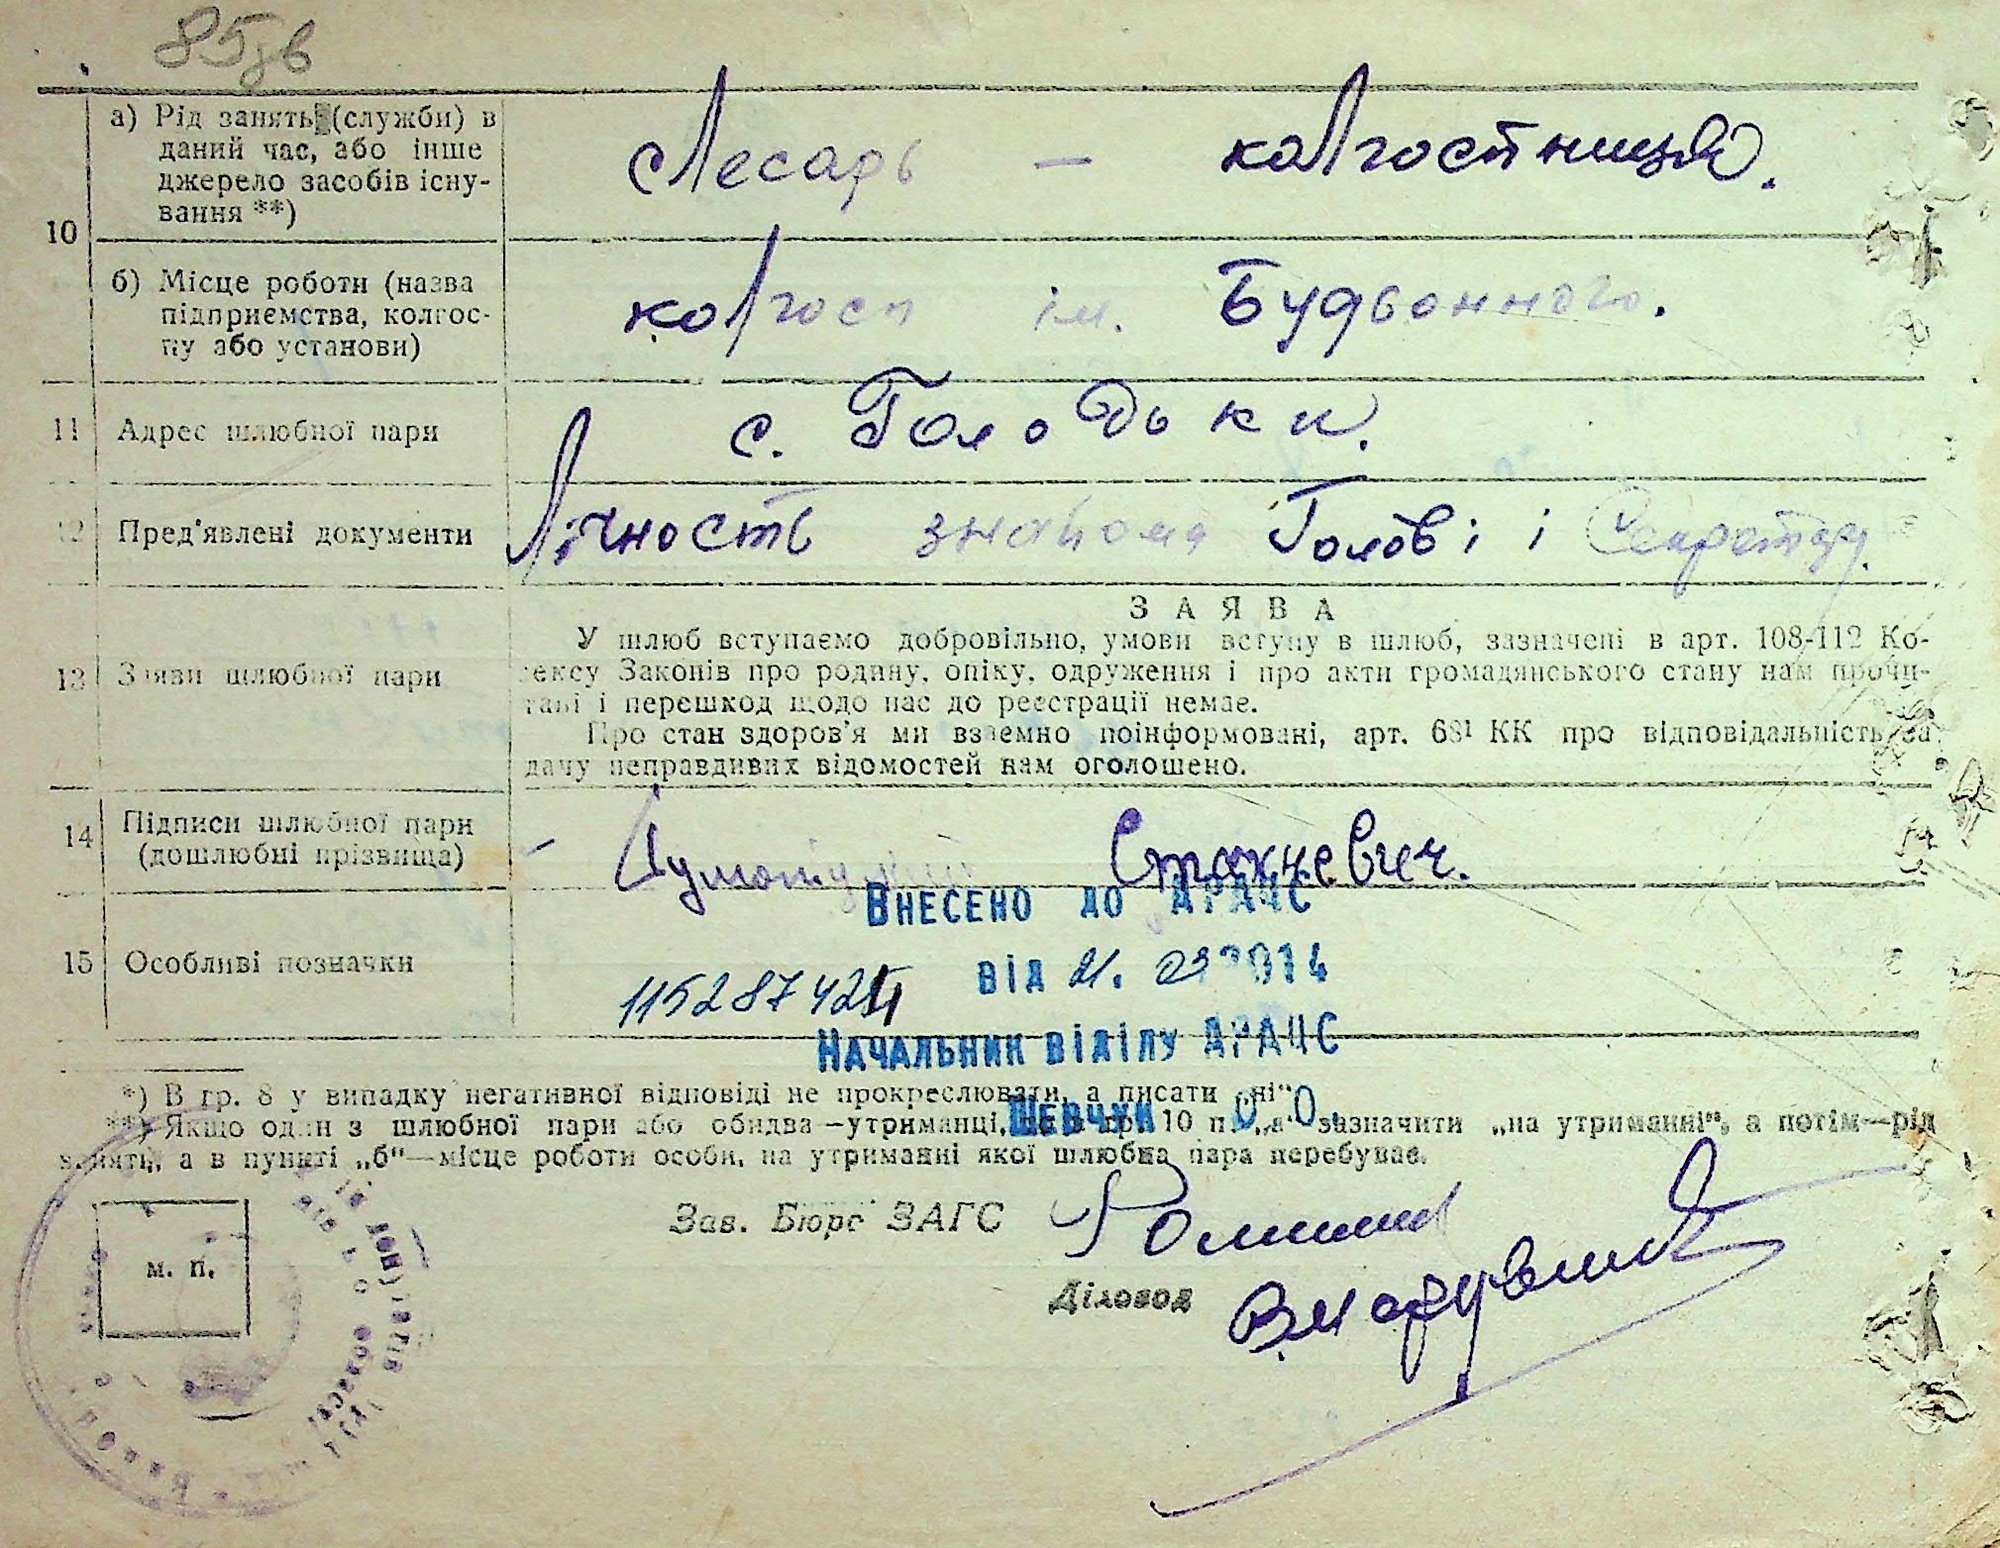 85зв
10
а) Рід занять (служби) в
даний час, або інше
джерело засобів існу-
вання **)
слесарь — колгостниця.
б) Місце роботи (назва
підприємства, колгос-
пу або установи)
колгосп ім. Будьонного.
11 Адрес шлюбної пари
с. Голодьки.
12 Пред'явлені документи
Лічность знайома Голові і Секретар.
13 Заяви шлюбної пари
ЗАЯВА
У шлюб вступаємо добровільно, умови вступу в шлюб, зазначені в арт. 108-112 Ко-
дексу Законів про родину, опіку, одруження і про акти громадянського стану нам прочи-
тані і перешкод щодо нас до реєстрації немає.
Про стан здоров'я ми взаємно поінформовані, арт. 68¹ КК про відповідальність за
дачу неправдивих відомостей нам оголошено.
14 Підписи шлюбної пари
(дошлюбні прізвища)
Стахневич.
15 Особливі позначки
Внесено до ДРАЦС
від 21. 03 2014
Начальник відділу ДРАЦС
Шевчук О.О.
*) В гр. 8 у випадку негативної відповіді не прокреслювати, а писати „ні“.
**) Якщо один з шлюбної пари або обидва—утриманці, то в гр. 10 п. „а“ зазначити „на утриманні“, а потім—рід
занять, а в пункті „б“—місце роботи особи, на утриманні якої шлюбна пара перебуває.
Зав. Бюро ЗАГС
м. п.
Діловод